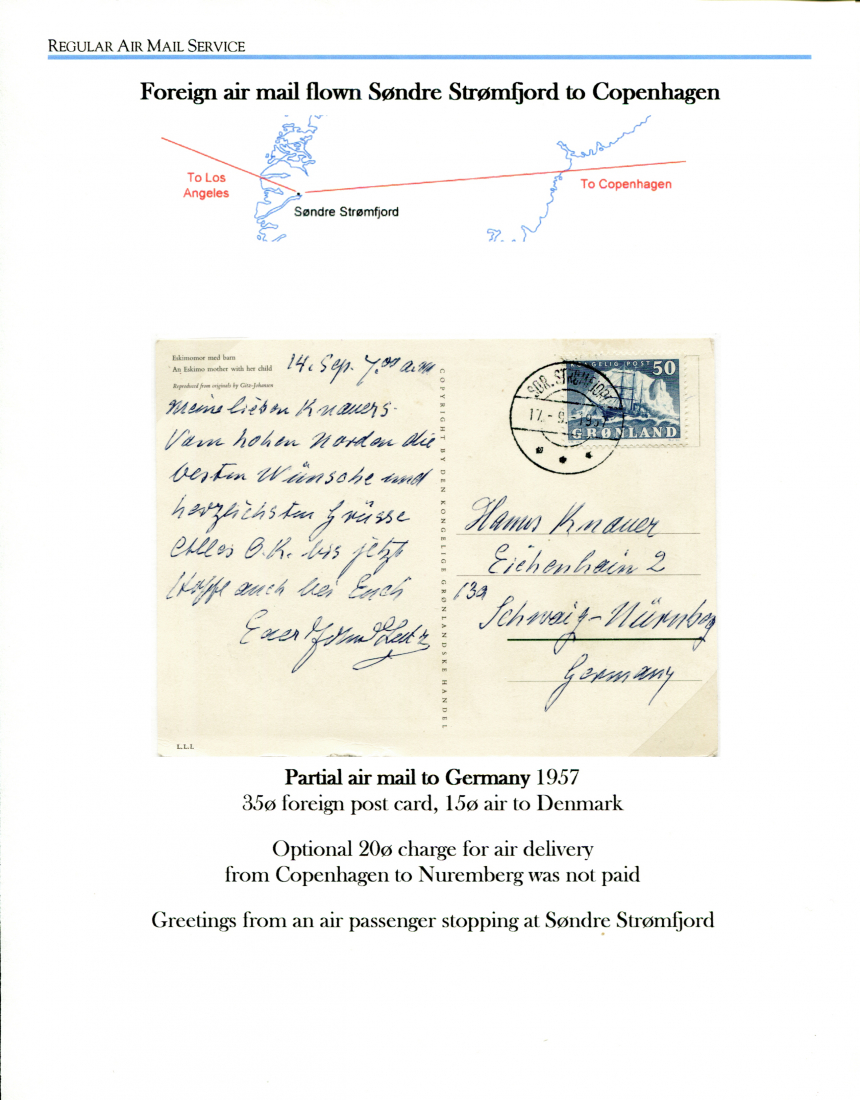 REGULAR AIR MAIL SERVICE
Foreign air mail flown Søndre Strømfjord to Copenhagen
To Los
Angeles
Søndre Strømfjord
To Copenhagen
Eskimomor med barn
An Eskimo mother with her child
Reproduced from originals by Gitz-Johansen
14. Sep. 7.00 a.m.
Meine lieben Knauers-
Vom hohen Norden die
besten Wünsche und
herzlichsten Grüsse
Alles O.K. bis jetzt
Hoffe auch bei Euch
Euer
L.L.L
COPYRIGHT BY DEN KONGELIGE GRØNLANDSKE HANDEL
KONGELIG POST 50
GRØNLAND
SDR. STRØMFJORD
17.-9. 1957
Hanns Knauer
Eichenhain 2
13a
Schwaig-Nürnberg
Germany
Partial air mail to Germany 1957
35ø foreign post card, 15ø air to Denmark
Optional 20ø charge for air delivery
from Copenhagen to Nuremberg was not paid
Greetings from an air passenger stopping at Søndre Strømfjord